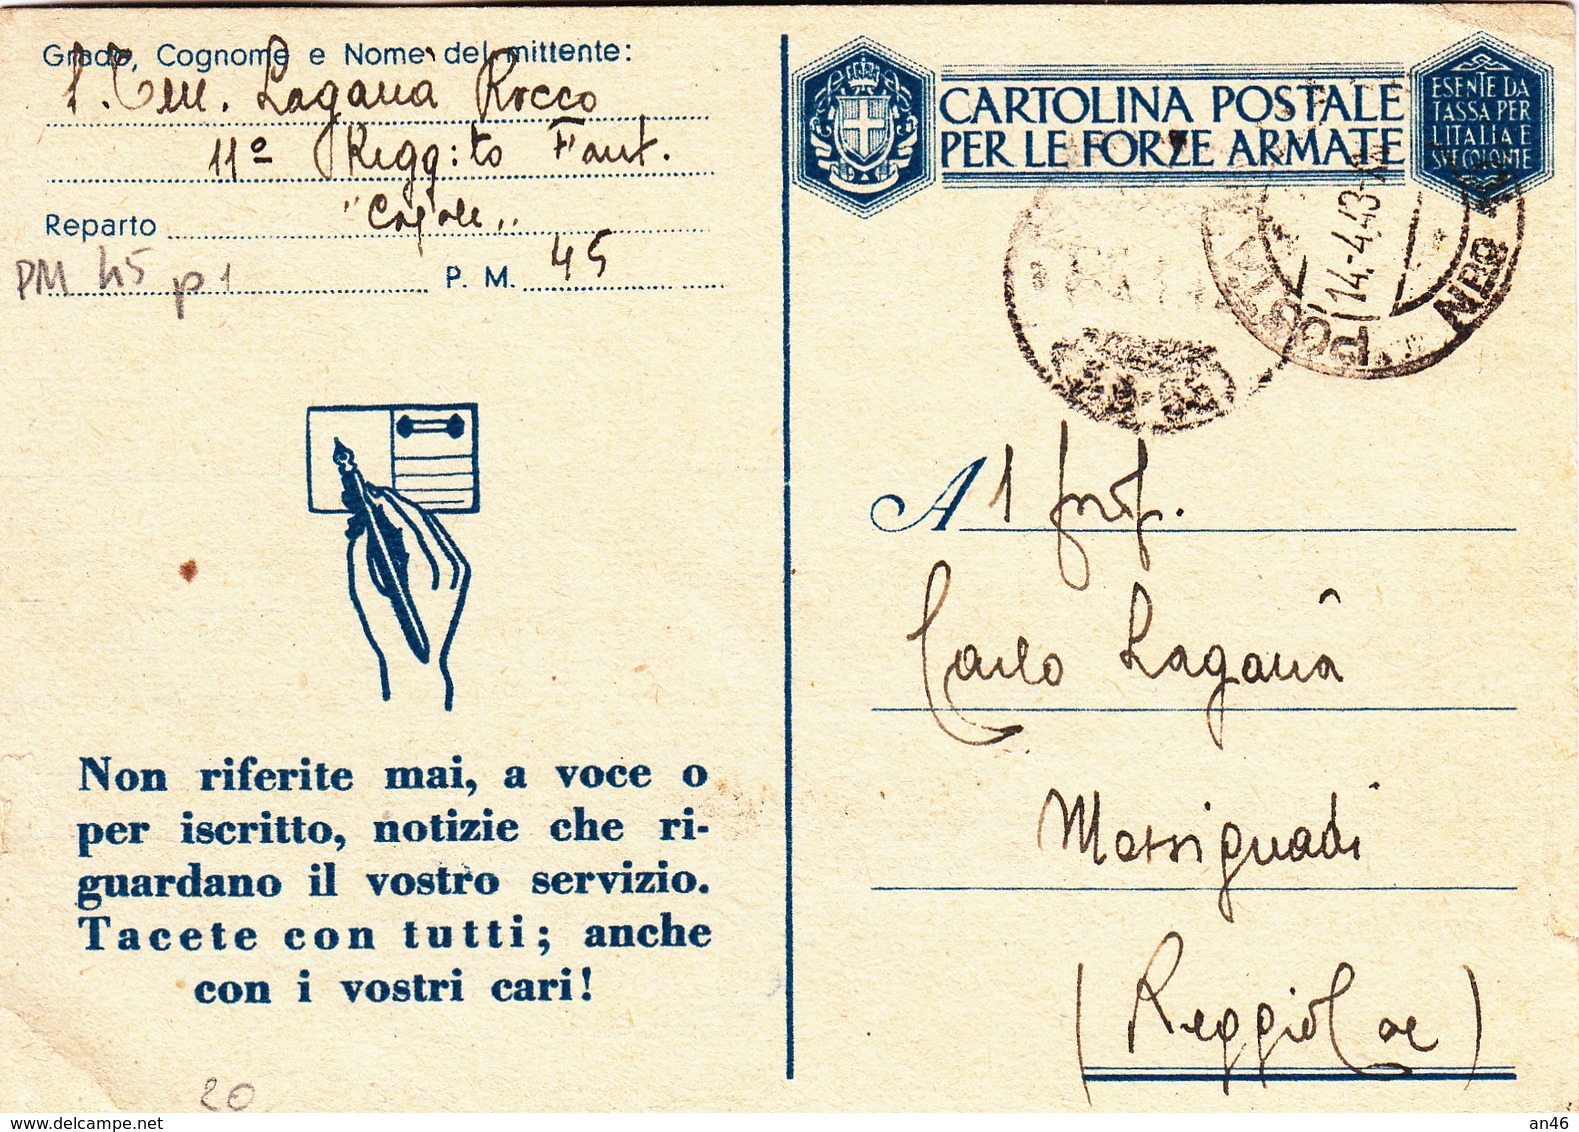 Grado, Cognome e Nome del mittente:
S. Ten. Laganà Rocco
11º Regg:to Fant.
Reparto "Casale"
PM 45 p1 P. M. 45
Non riferite mai, a voce o
per iscritto, notizie che ri-
guardano il vostro servizio.
Tacete con tutti; anche
con i vostri cari!
20
CARTOLINA POSTALE
PER LE FORZE ARMATE
ESENTE DA
TASSA PER
L'ITALIA E
SUE COLONIE
POSTA
14.-4.43-XXI
A l prof.
Carlo Laganà
Massiguadi
(Reggio Cal)
delcampe.net
an46